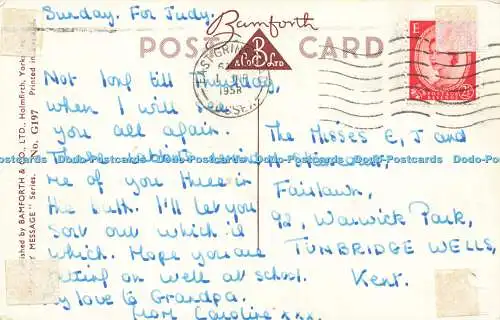 Sunday. For Judy.
Bamforth
POST CARD
& Co B LTD
EAST GRINS
1958
SUSSEX
E
Published by BAMFORTH & CO., LTD., Holmfirth, Yorks
MESSAGE" Series. No. G197 Printed in
Not long till
when I will see
you all again.
This
me of you three in
the bath. I'll let you
sort out which is
which. Hope you are
getting on well at school.
My love to Grandpa.
from Caroline xxx.
The MISSES E, J and
H
Fairlawn,
92, Warwick Park,
TUNBRIDGE WELLS,
Kent.
Dodo-Postcards Dodo-Postcards Dodo-Postcards Dodo-Postcards